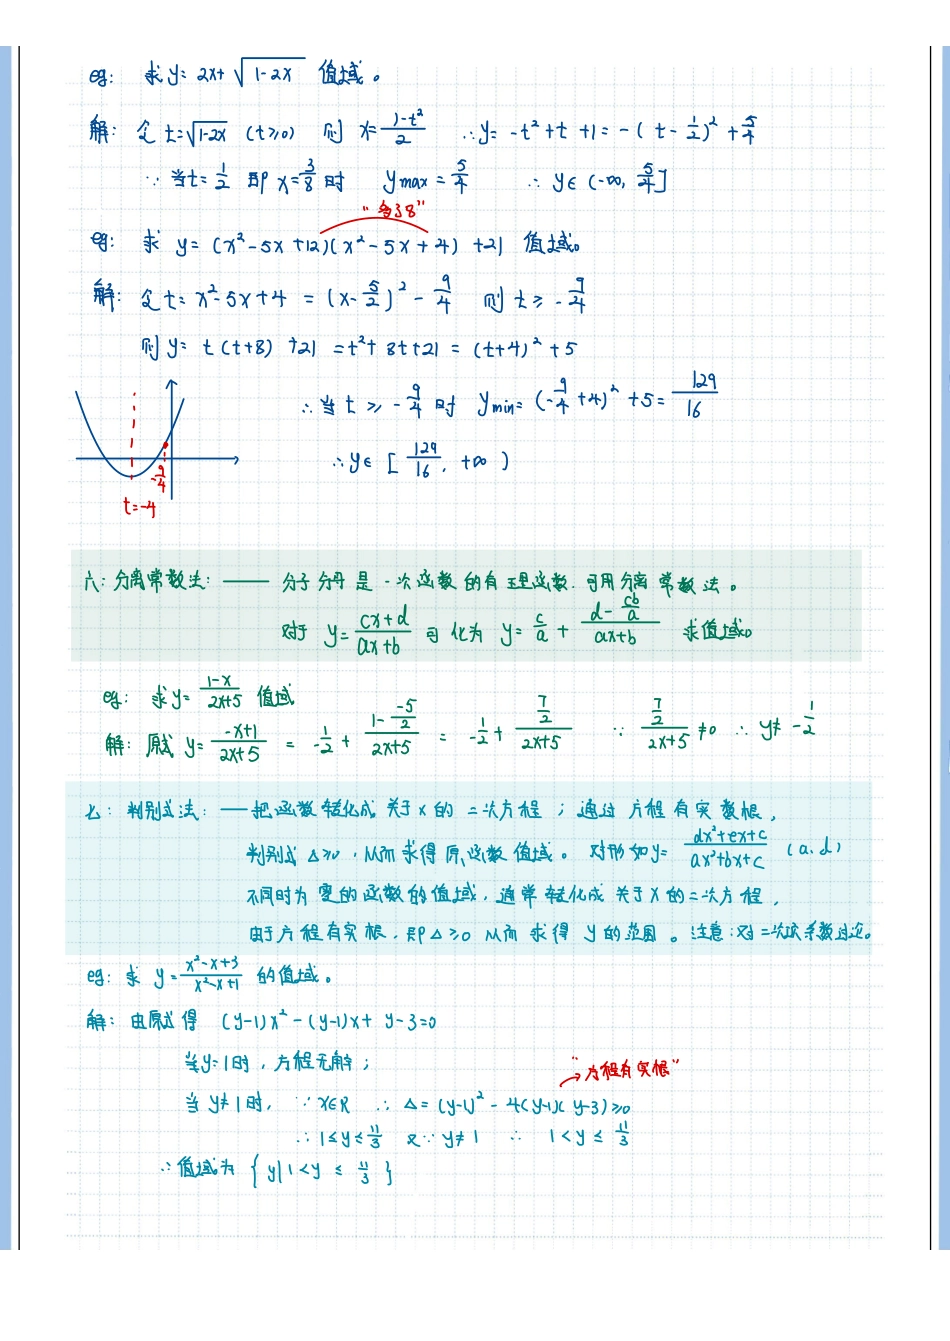 eg: 求 y= 2x+ √(1-2x) 值域。
解: 令 t=√(1-2x) (t≥0) 则 x=(1-t²)/2 ∴y= -t²+t+1= -(t-1/2)²+5/4
∵ 当t=1/2 即 x=3/8 时 ymax=5/4 ∴ y∈(-∞, 5/4]
"多了8"
eg: 求 y=(x²-5x+12)(x²-5x+4)+21 值域。
解: 令t=x²-5x+4 =(x-5/2)²-9/4 则 t≥-9/4
则 y= t(t+8)+21 =t²+8t+21=(t+4)²+5
∴当 t≥-9/4 时 ymin=(-9/4+4)²+5=129/16
∴y∈[129/16, +∞)
-9/4
t=-4
六: 分离常数法: —— 分子分母是一次函数的有理函数. 可用分离常数法。
对于 y=(cx+d)/(ax+b) 可化为 y=c/a+(d-cb/a)/(ax+b) 求值域。
eg: 求y=(1-x)/(2x+5) 值域
解: 原式 y=(-x+1)/(2x+5) = -1/2+(1-(-5/2))/(2x+5) = -1/2+(7/2)/(2x+5) ∵ (7/2)/(2x+5)≠0 ∴ y≠-1/2
七: 判别式法: —— 把函数转化成关于x的二次方程; 通过方程有实数根,
判别式△≥0, 从而求得原函数值域。对形如y=(dx²+ex+c)/(ax²+bx+c) (a、d)
不同时为零的函数的值域, 通常转化成关于x的二次方程,
由于方程有实根, 即△≥0 从而求得y的范围。注意:对二次项系数讨论。
eg: 求 y=(x²-x+3)/(x²-x+1) 的值域。
解: 由原式得 (y-1)x²-(y-1)x+y-3=0
当y=1时, 方程无解;
"方程有实根"
当y≠1时, ∵x∈R ∴△=(y-1)²-4(y-1)(y-3)≥0
∴1≤y≤11/3 又∵y≠1 ∴ 1<y≤11/3
∴值域为{y|1<y≤11/3}